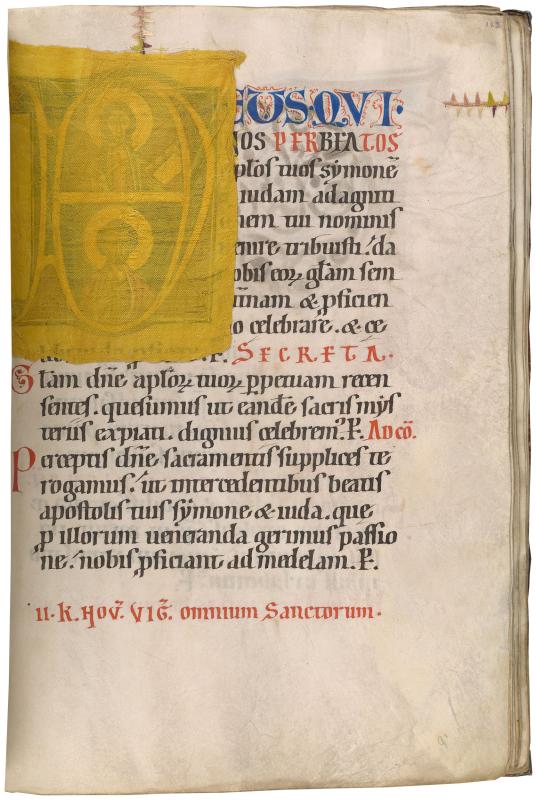 EUS·QVI·
NOS PERBEATOS
plo̅s tuos symone̅
iudam ad agniti
nem tui nominis
enire tribuisti. da
obis eoꝝ gl̅am sem
nam & ꝓficien
o celebrare. & ce
SECRETA.
Gl̅am dn̅e aplo̅ꝝ tuoꝝ ꝑpetuam recen
sentes. quesumus ut eande̅ sacris mys
teriis expiati. dignius celebrem̅. P. AD CO̅.
Perceptis dn̅e sacramentis supplices te
rogamus. ut intercedentibus beatis
apostolis tuis symone & iuda. que
ꝑ illorum ueneranda gerimus passio
ne. nobis ꝓficiant ad medelam. P.
II·K. NOV̅. VIG̅. omnium Sanctorum.